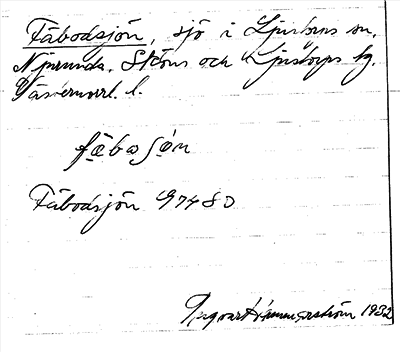 Fäbodsjön, sjö i Ljustorps sn,
Njurunda, Sköns och Ljustorps tg.
Västernorrl. l.
fäbosjön
Fäbodsjön 97480
Ragvart Hammarström 1932